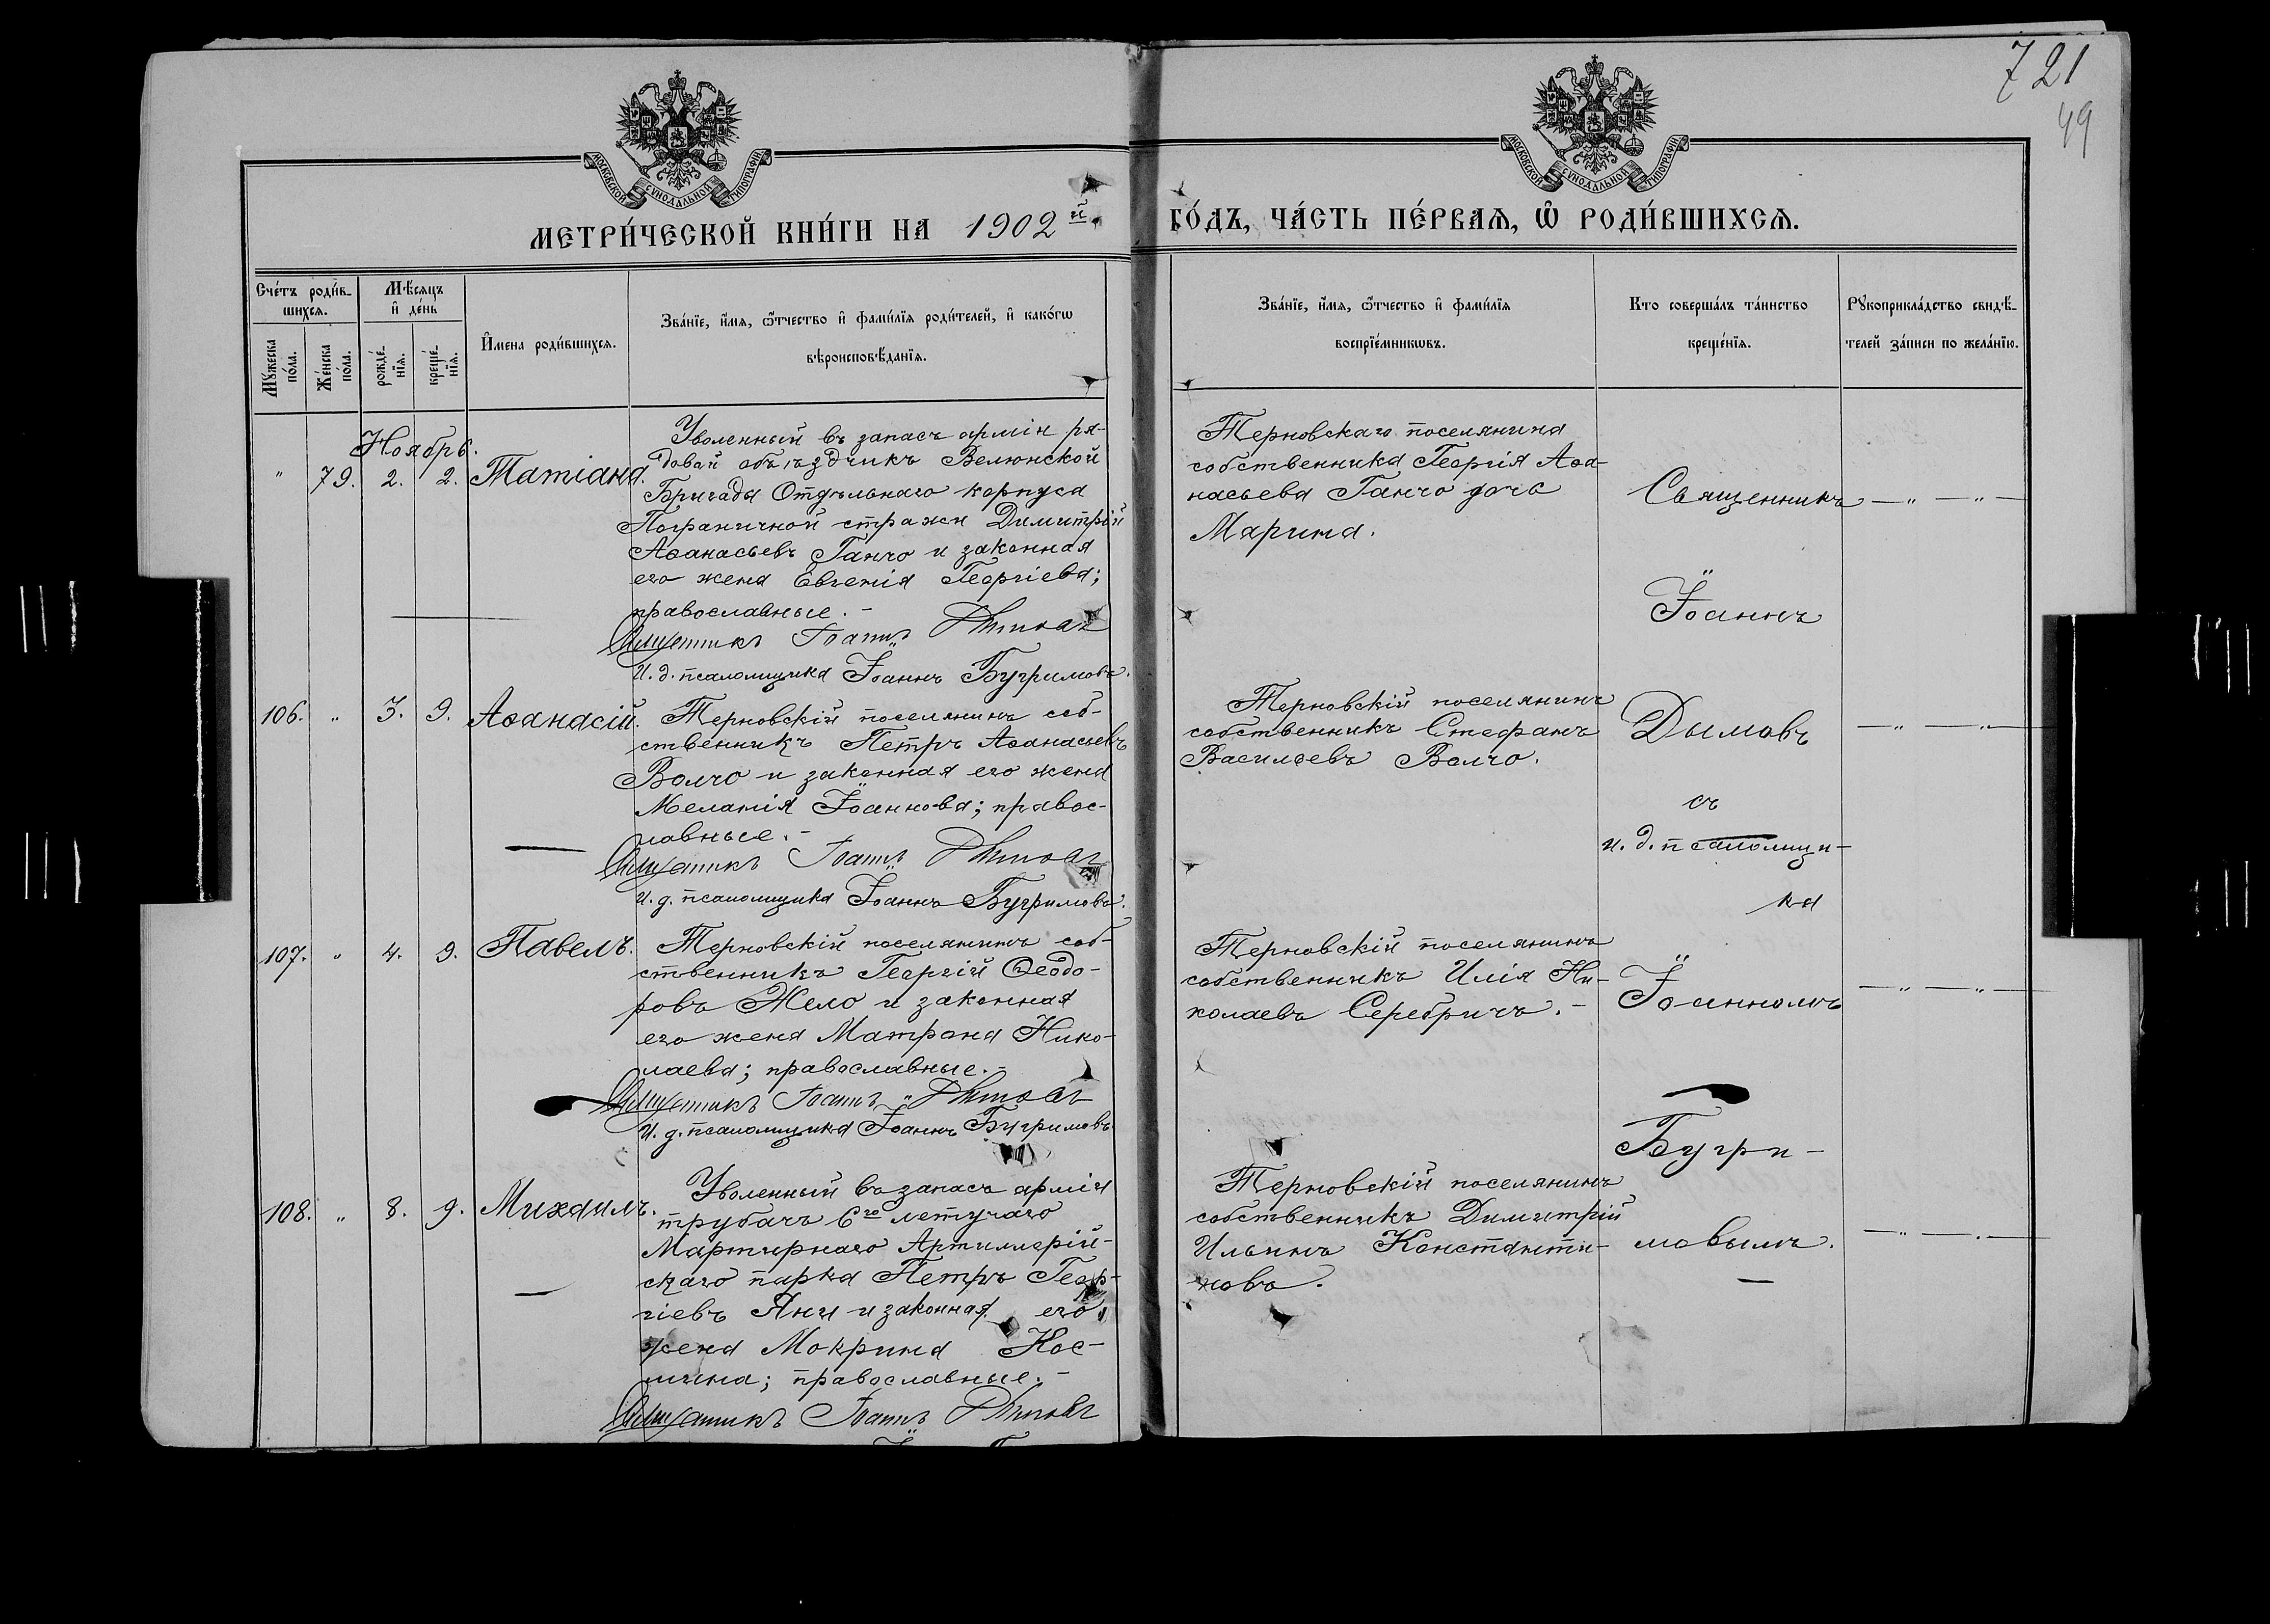 721
49
МОСКОВСКОЙ СѴНОДАЛЬНОЙ ТИПОГРАФІИ
МОСКОВСКОЙ СѴНОДАЛЬНОЙ ТИПОГРАФІИ
МЕТРИ́ЧЕСКОЙ КНИ́ГИ НА 1902й
ГО́ДЪ, ЧА́СТЬ ПЕ́РВАѦ, Ѡ҆ РОДИ́ВШИХСѦ.
Сче́тъ роди́в-
шихсѧ.
Мꙋ́жеска по́ла.
Же́нска по́ла.
Мѣ́сѧцъ
и҆ де́нь
рожде́-
нїѧ.
креще́-
нїѧ.
И҆мена роди́вшихсѧ.
Зва́нїе, и҆́мѧ, ѻ҆́тчество и҆ фами́лїѧ роди́телей, и҆ како́гѡ
вѣроисповѣ́данїѧ.
Зва́нїе, и҆́мѧ, ѻ҆́тчество и҆ фами́лїѧ
воспрїе́мникѡвъ.
Кто соверша́лъ та́инство
креще́нїѧ.
Рꙋкоприкла́дство свидѣ́-
телей за́писи по жела́нїю.
Ноябрь.
" 79. 2. 2. Татіана.
Уволенный въ запасъ арміи ря-
довой объѣздчикъ Велюнской
Бригады Отдѣльнаго корпуса
Пограничной стражи Димитрій
Аѳанасьевъ Ганчо и законная
его жена Евгенія Георгіева;
православные.-
Священникъ Іоаннъ Дымовъ
И. д. псаломщика Іоаннъ Бугримовъ.
Терновскаго поселянина
собственника Георгія Аѳа-
насьева Ганчо дочь
Марина.
106. " 3. 9. Аѳанасій.
Терновскій поселянинъ соб-
ственникъ Петръ Аѳанасьевъ
Волчо и законная его жена
Меланія Іоаннова; правос-
лавные.-
Священникъ Іоаннъ Дымовъ
И. д. псаломщика Іоаннъ Бугримовъ.
Терновскій поселянинъ
собственникъ Стефанъ
Васильевъ Волчо.
107. " 4. 9. Павелъ.
Терновскій поселянинъ соб-
ственникъ Георгій Ѳеодо-
ровъ Жело и законная
его жена Матрона Нико-
лаева; православные.-
Священникъ Іоаннъ Дымовъ
И. д. псаломщика Іоаннъ Бугримовъ
Терновскій поселянинъ
собственникъ Илія Ни-
колаевъ Серебричъ.-
108. " 8. 9. Михаилъ.
Уволенный въ запасъ арміи
трубачъ 6го летучаго
Мортирнаго Артиллерій-
скаго парка Петръ Геор-
гіевъ Яни и законная его
жена Мокрина Кос-
мина; православные.-
Священникъ Іоаннъ Дымовъ
Терновскій поселянинъ
собственникъ Димитрій
Ильинъ Константи-
новъ.
Священникъ
Іоаннъ
Дымовъ
съ
и. д. псаломщи-
ка
Іоанномъ
Бугри-
мовымъ.